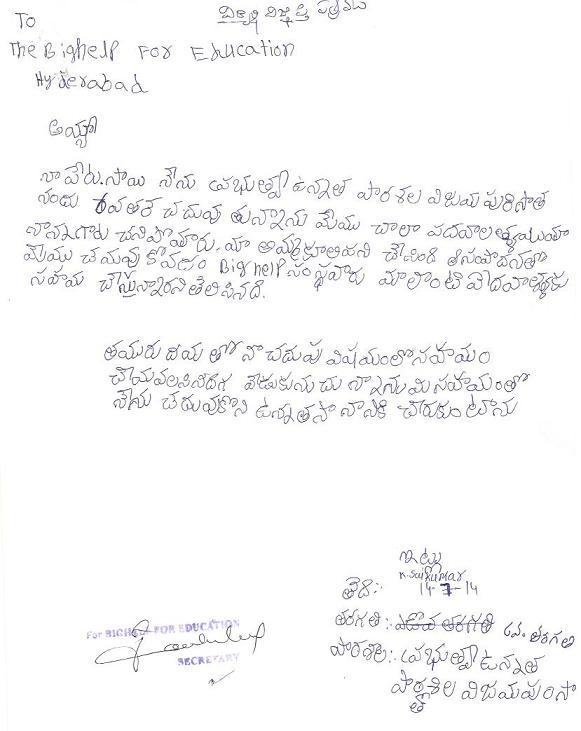 To
The Bighelp For Education
Hyderabad
అయ్యా
నా పేరు. సాయి నేను ప్రభుత్వా ఉన్నత పారశల విజయ పురిసౌత
నందు చదువు తున్నాను మేము చాలా
నాన్నగారు చనిపోతారు. మా అమ్మ చేసింది
మేము చదువు కోవడం Big help సంస్థవారు మాలాంటి
సహయ చేస్తున్నారని తెలిసినది.
తయురు దయ తో నా చదువు విషయంలొ సహాయం
చేయవలసినదిగ వేడుకును చు న్నాను మి సహయంతో
నేను చదువుకొని ఉన్నతసా నానికి చేరుకుంటాను
ఇట్లు
K. Saikumar
తేది: 14-7-14
తరగతి: తరగతి ౬వ. తరగతి
పారశల: ప్రభుత్వా ఉన్నత
పార్శశిల విజయపురిసౌ
త
For BIGHELP FOR EDUCATION
SECRETARY